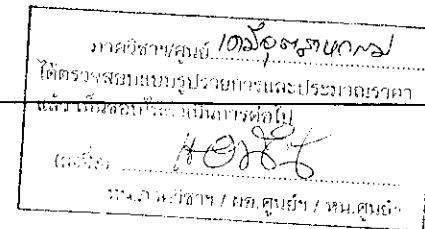 ภาควิชาฯ/ศูนย์ เคมีอุตสาหกรรม
ได้ตรวจสอบแบบรูปรายการและประมาณราคา
แล้ว เห็นชอบให้ดำเนินการต่อไป
(ลงชื่อ)
หน.ภาควิชาฯ / ผอ.ศูนย์ฯ / หน.ศูนย์ฯ